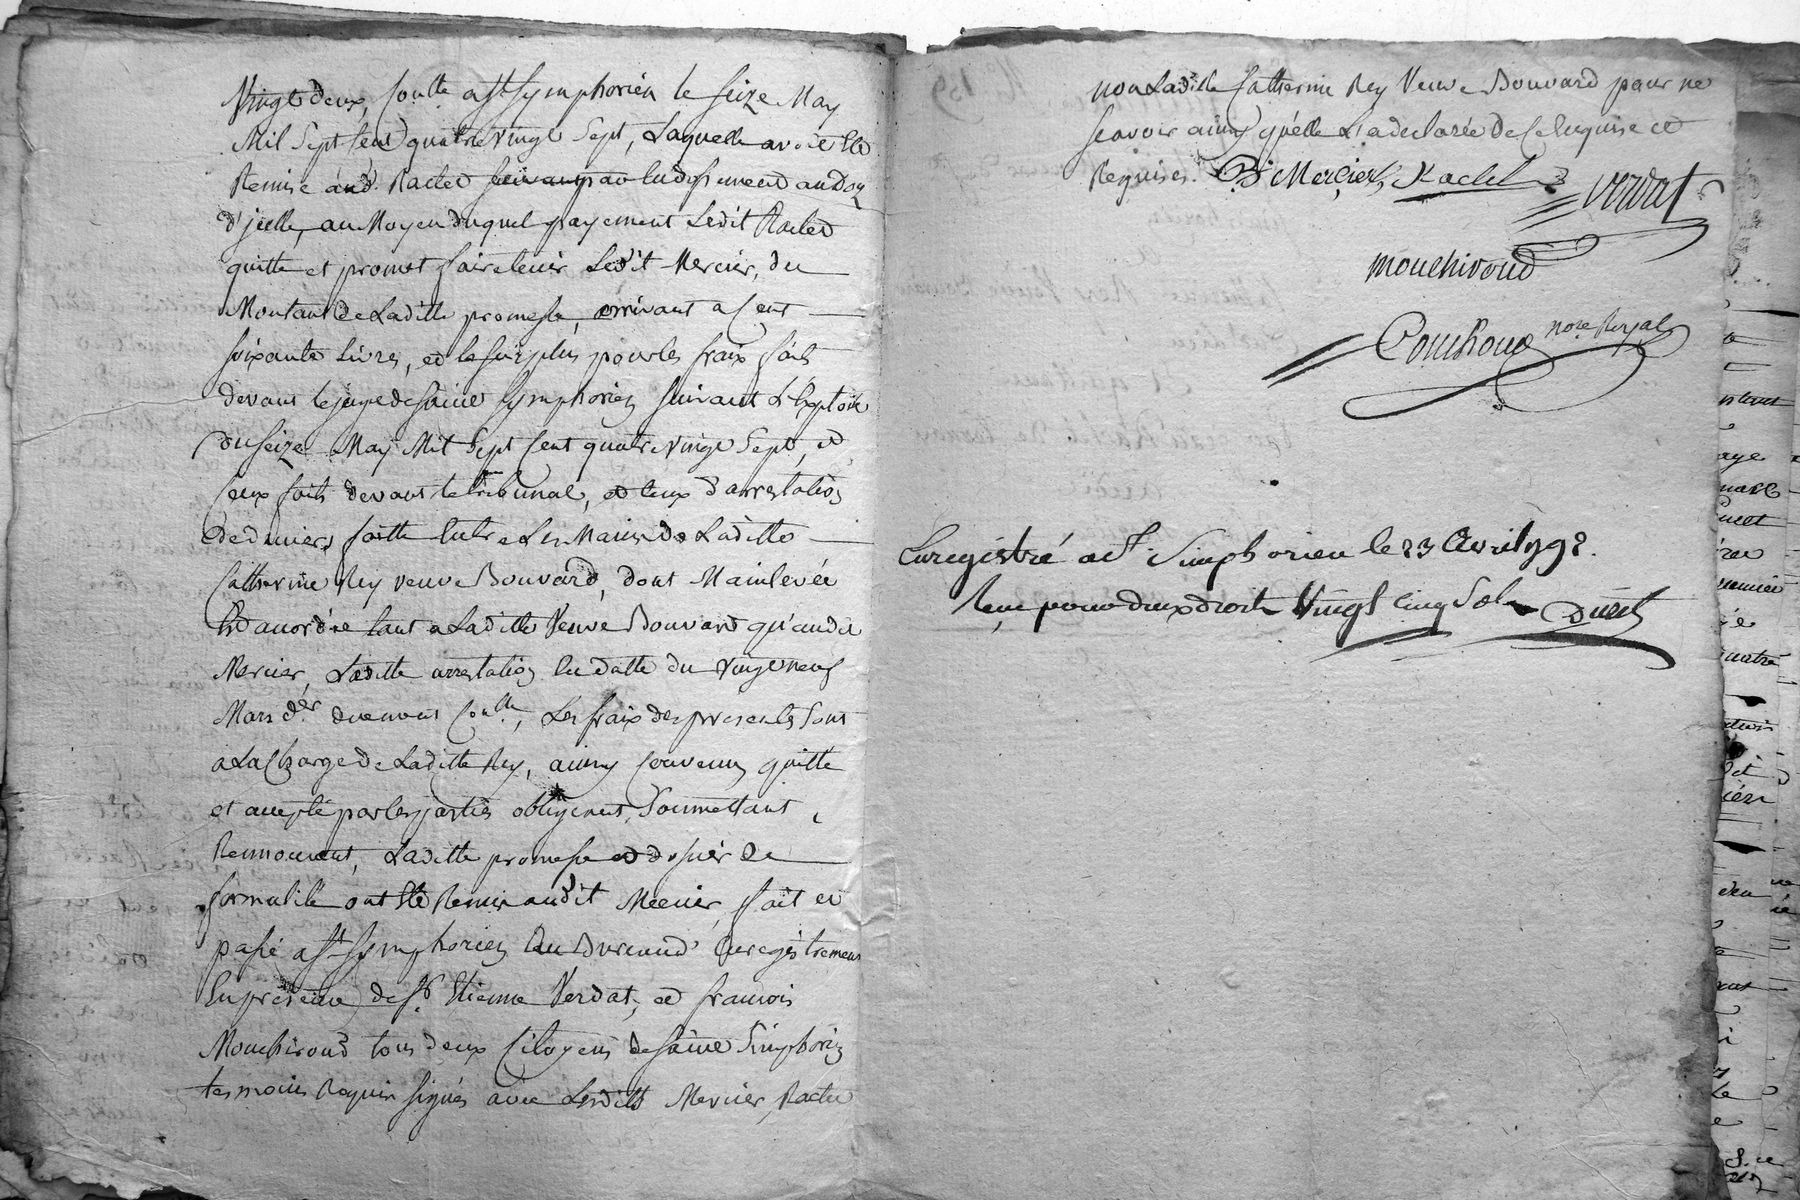 Vingt deux, Con.lle a St Symphorien le Seize May
Mil Sept Cent quatre Vingt Sept, Laquelle avoit Eté
Remise aud. Raclet par Endossement au Doz
d'jcelle, au Moyen duquel payement Ledit Raclet
quitte et promet faire tenir Ledit Mercier, du
Montant De Laditte promesse, arrivant a Cent
soixante Livres, et le surplus pour les fraix faits
devant le juge de Saint Symphorien suivant L'Exploit
du seize May Mil Sept Cent quatre Vingt Sept, et
Ceux faits devant le tribunal, et Ceux d'arrestation
De Deniers faitte Entre Les Mains De Laditte
Catherine Rey veuve Bouvard, dont Mainlevée
Est accordée tant a Laditte Veuve Bouvard qu'audit
Mercier, Laditte arrestation En datte du Vingt neuf
Mars d.er Con.lle, Les fraix des presentes Sont
a La Charge De Laditte Rey, ainsy Convenu, quitté
et accepté par les parties obligeant, Soumettant,
Renoncant, Laditte promesse et dossier De
formalité ont Eté Remis audit Mercier, fait et
passé a St Symphorien Au Bureau d'Enregistrement
En présence de Sr. Etienne Verdat, et francois
Mouchiroud tous deux Citoyens de Saint Simphorien
temoins Requis signés avec Lesdits Mercier, Raclet
non Laditte Catherine Rey Veuve Bouvard pour ne
scavoir ainsy qu'elle L'a declarée De Ce Enquise et
Requises. Mercier, Raclet Verdat
mouchiroud
Couchoud no.re Royal
Enregistré a St Simphorien le 23 Avril 1792.
Reçu pour deux droits Vingt Cinq Sols